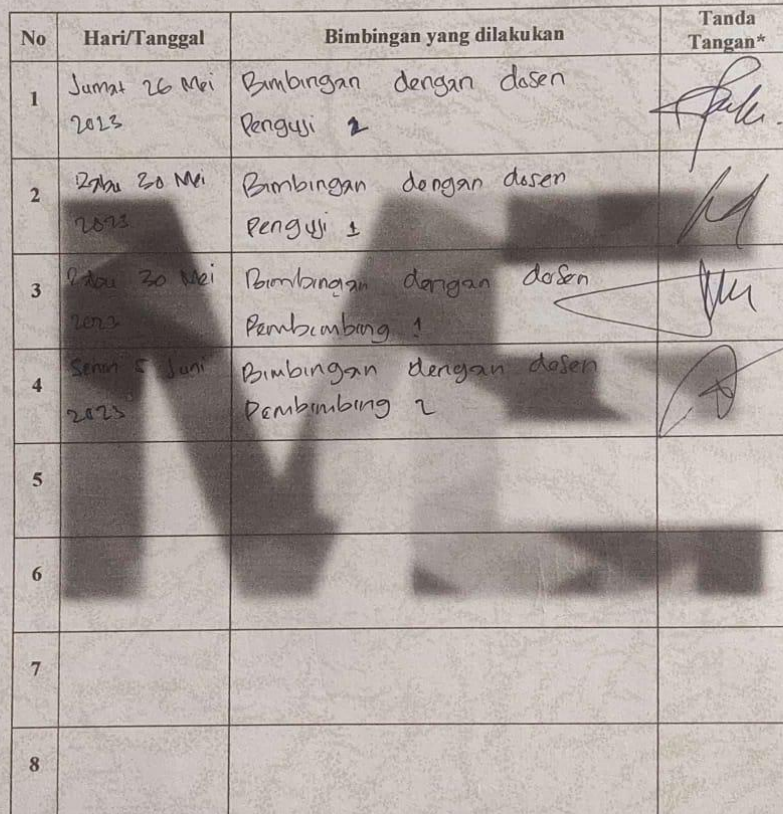 No Hari/Tanggal Bimbingan yang dilakukan Tanda
Tangan*
1 Jumat 26 Mei Bimbingan dengan dosen
2023 Penguji 2
2 Rabu 30 Mei Bimbingan dengan dosen
2023 Penguji 1
3 Rabu 30 Mei Bimbingan dengan dosen
2023 Pembimbing 1
4 Senin 5 Juni Bimbingan dengan dosen
2023 Pembimbing 2
5
6
7
8